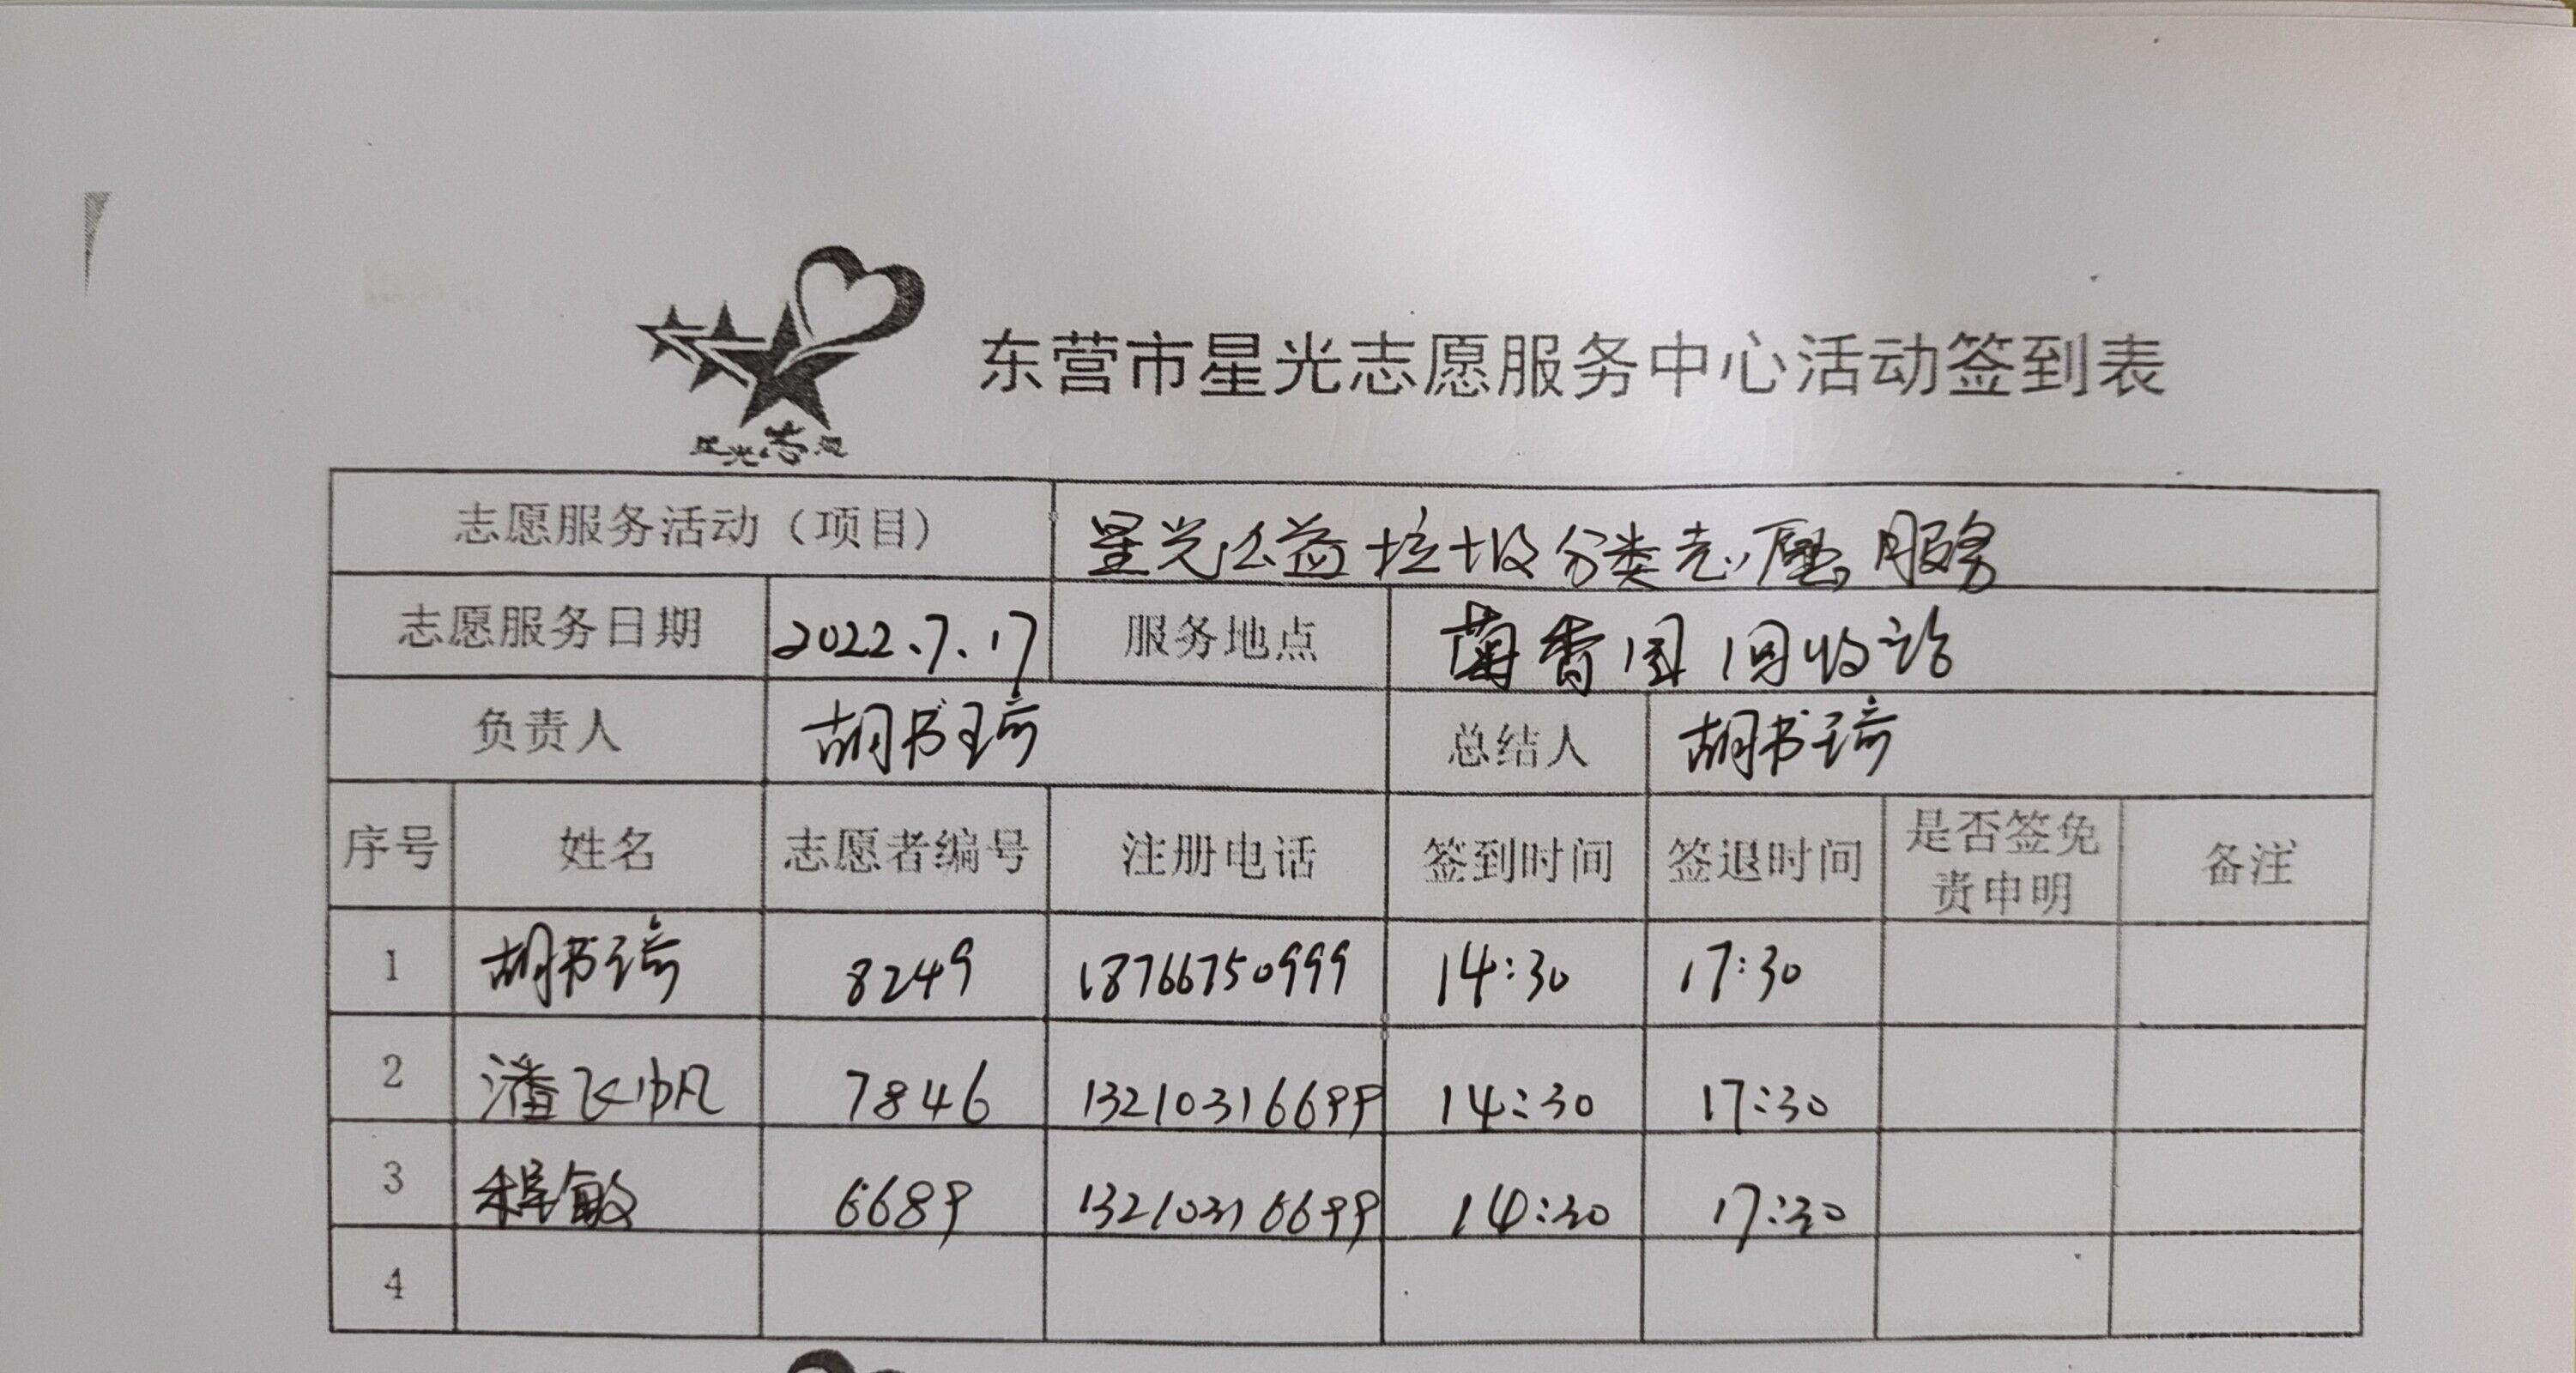 东营市星光志愿服务中心活动签到表
星光志愿
志愿服务活动（项目） 星光公益垃圾分类志愿服务
志愿服务日期 2022.7.17 服务地点 菊香园回收站
负责人 胡书琦 总结人 胡书琦
序号 姓名 志愿者编号 注册电话 签到时间 签退时间 是否签免责申明 备注
1 胡书琦 8249 18766750999 14:30 17:30
2 潘飞帆 7846 13210316699 14:30 17:30
3 程敏 6689 13210316699 14:30 17:30
4